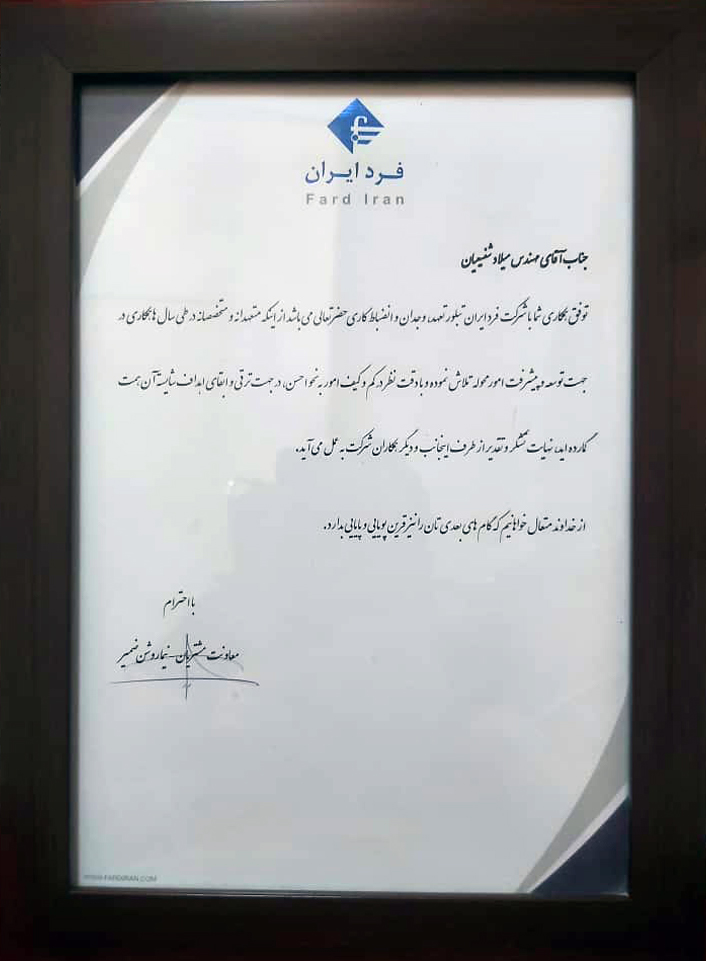 فرد ایران
Fard Iran
جناب آقای مهندس میلاد شفیعیان
توفق همکاری شما با شرکت فرد ایران تبلور تعهد، وجدان و انضباط کاری حضرتعالی می باشد از اینکه متعهدانه و متخصصانه در طی سال ها همکاری در
جهت توسعه و پیشرفت امور محوله تلاش نموده و با دقت نظر در کم و کیف امور به نحو احسن، در جهت ترقی و ابقای اهداف شایسته آن همت
گمارده اید، نهایت تشکر و تقدیر از طرف اینجانب و دیگر همکاران شرکت به عمل می آید.
از خداوند متعال خواهانیم که گام های بعدی تان را نیز قرین پویایی و پایایی بدارد.
با احترام
معاونت مشتریان - نیما روشن ضمیر
WWW.FARDIRAN.COM